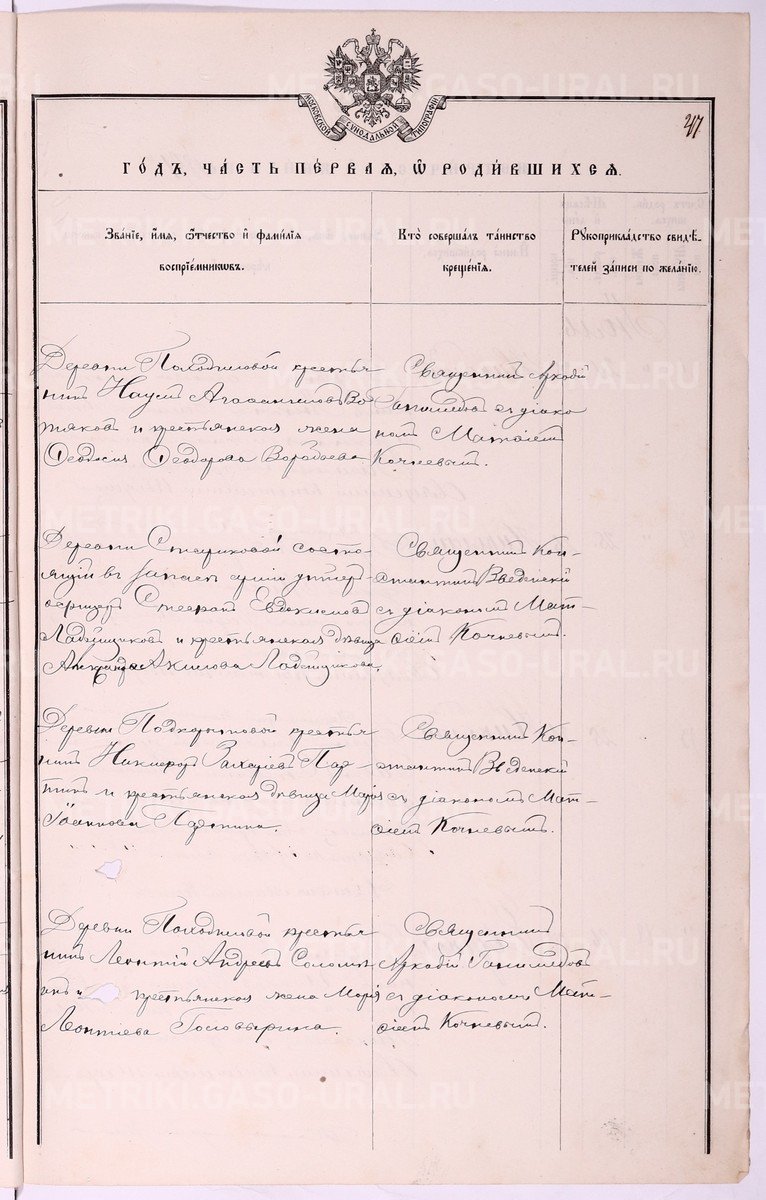 МОСКОВСКОЙ СѴНОДАЛЬНОЙ ТИПОГРАФІИ
Го́дъ, ча́сть пе́рваѧ, ѡ҆ роди́вшихсѧ.
Зва́нїе, и҆́мѧ, ѻ҆́тчество и҆ фами́лїѧ
воспрїе́мникѡвъ.
Кто̀ соверша́лъ та́инство
креще́нїѧ.
Рꙋкоприкла́дство свидѣ́-
телей за́писи по жела́нїю.
Деревни крестья
нинъ Наумъ Агаѳангеловъ Во
тяковъ и крестьянская жена
Ѳеодосия Ѳеодорова Воробьева
Священникъ Аркадій
Ганимедовъ съ діако
номъ Матѳіемъ
Кочневымъ.
Деревни Стариковой состо-
ящій въ запасѣ арміи унтеръ
офицеръ Стефанъ Евдокимовъ
Ладейщиковъ и крестьянская дѣвица
Акилова Ладейщикова.
Священникъ Кон-
стантинъ Введенскій
съ діакономъ Мат-
ѳіемъ Кочневымъ.
Деревни Подкорытовой крестья
нинъ Никифоръ Захаріевъ Пар-
и крестьянская дѣвица Марія
Іоаннова
Священникъ Кон-
стантинъ Введенскій
съ діакономъ Мат-
ѳіемъ Кочневымъ.
Деревни крестья
нинъ Леонтій Андреевъ Соломе
инъ и крестьянская жена Марія
Леонтиева Головырина.
Священникъ
Аркадій Ганимедовъ
съ діакономъ Мат-
ѳіемъ Кочневымъ.
METRIKI.GASO-URAL.RU